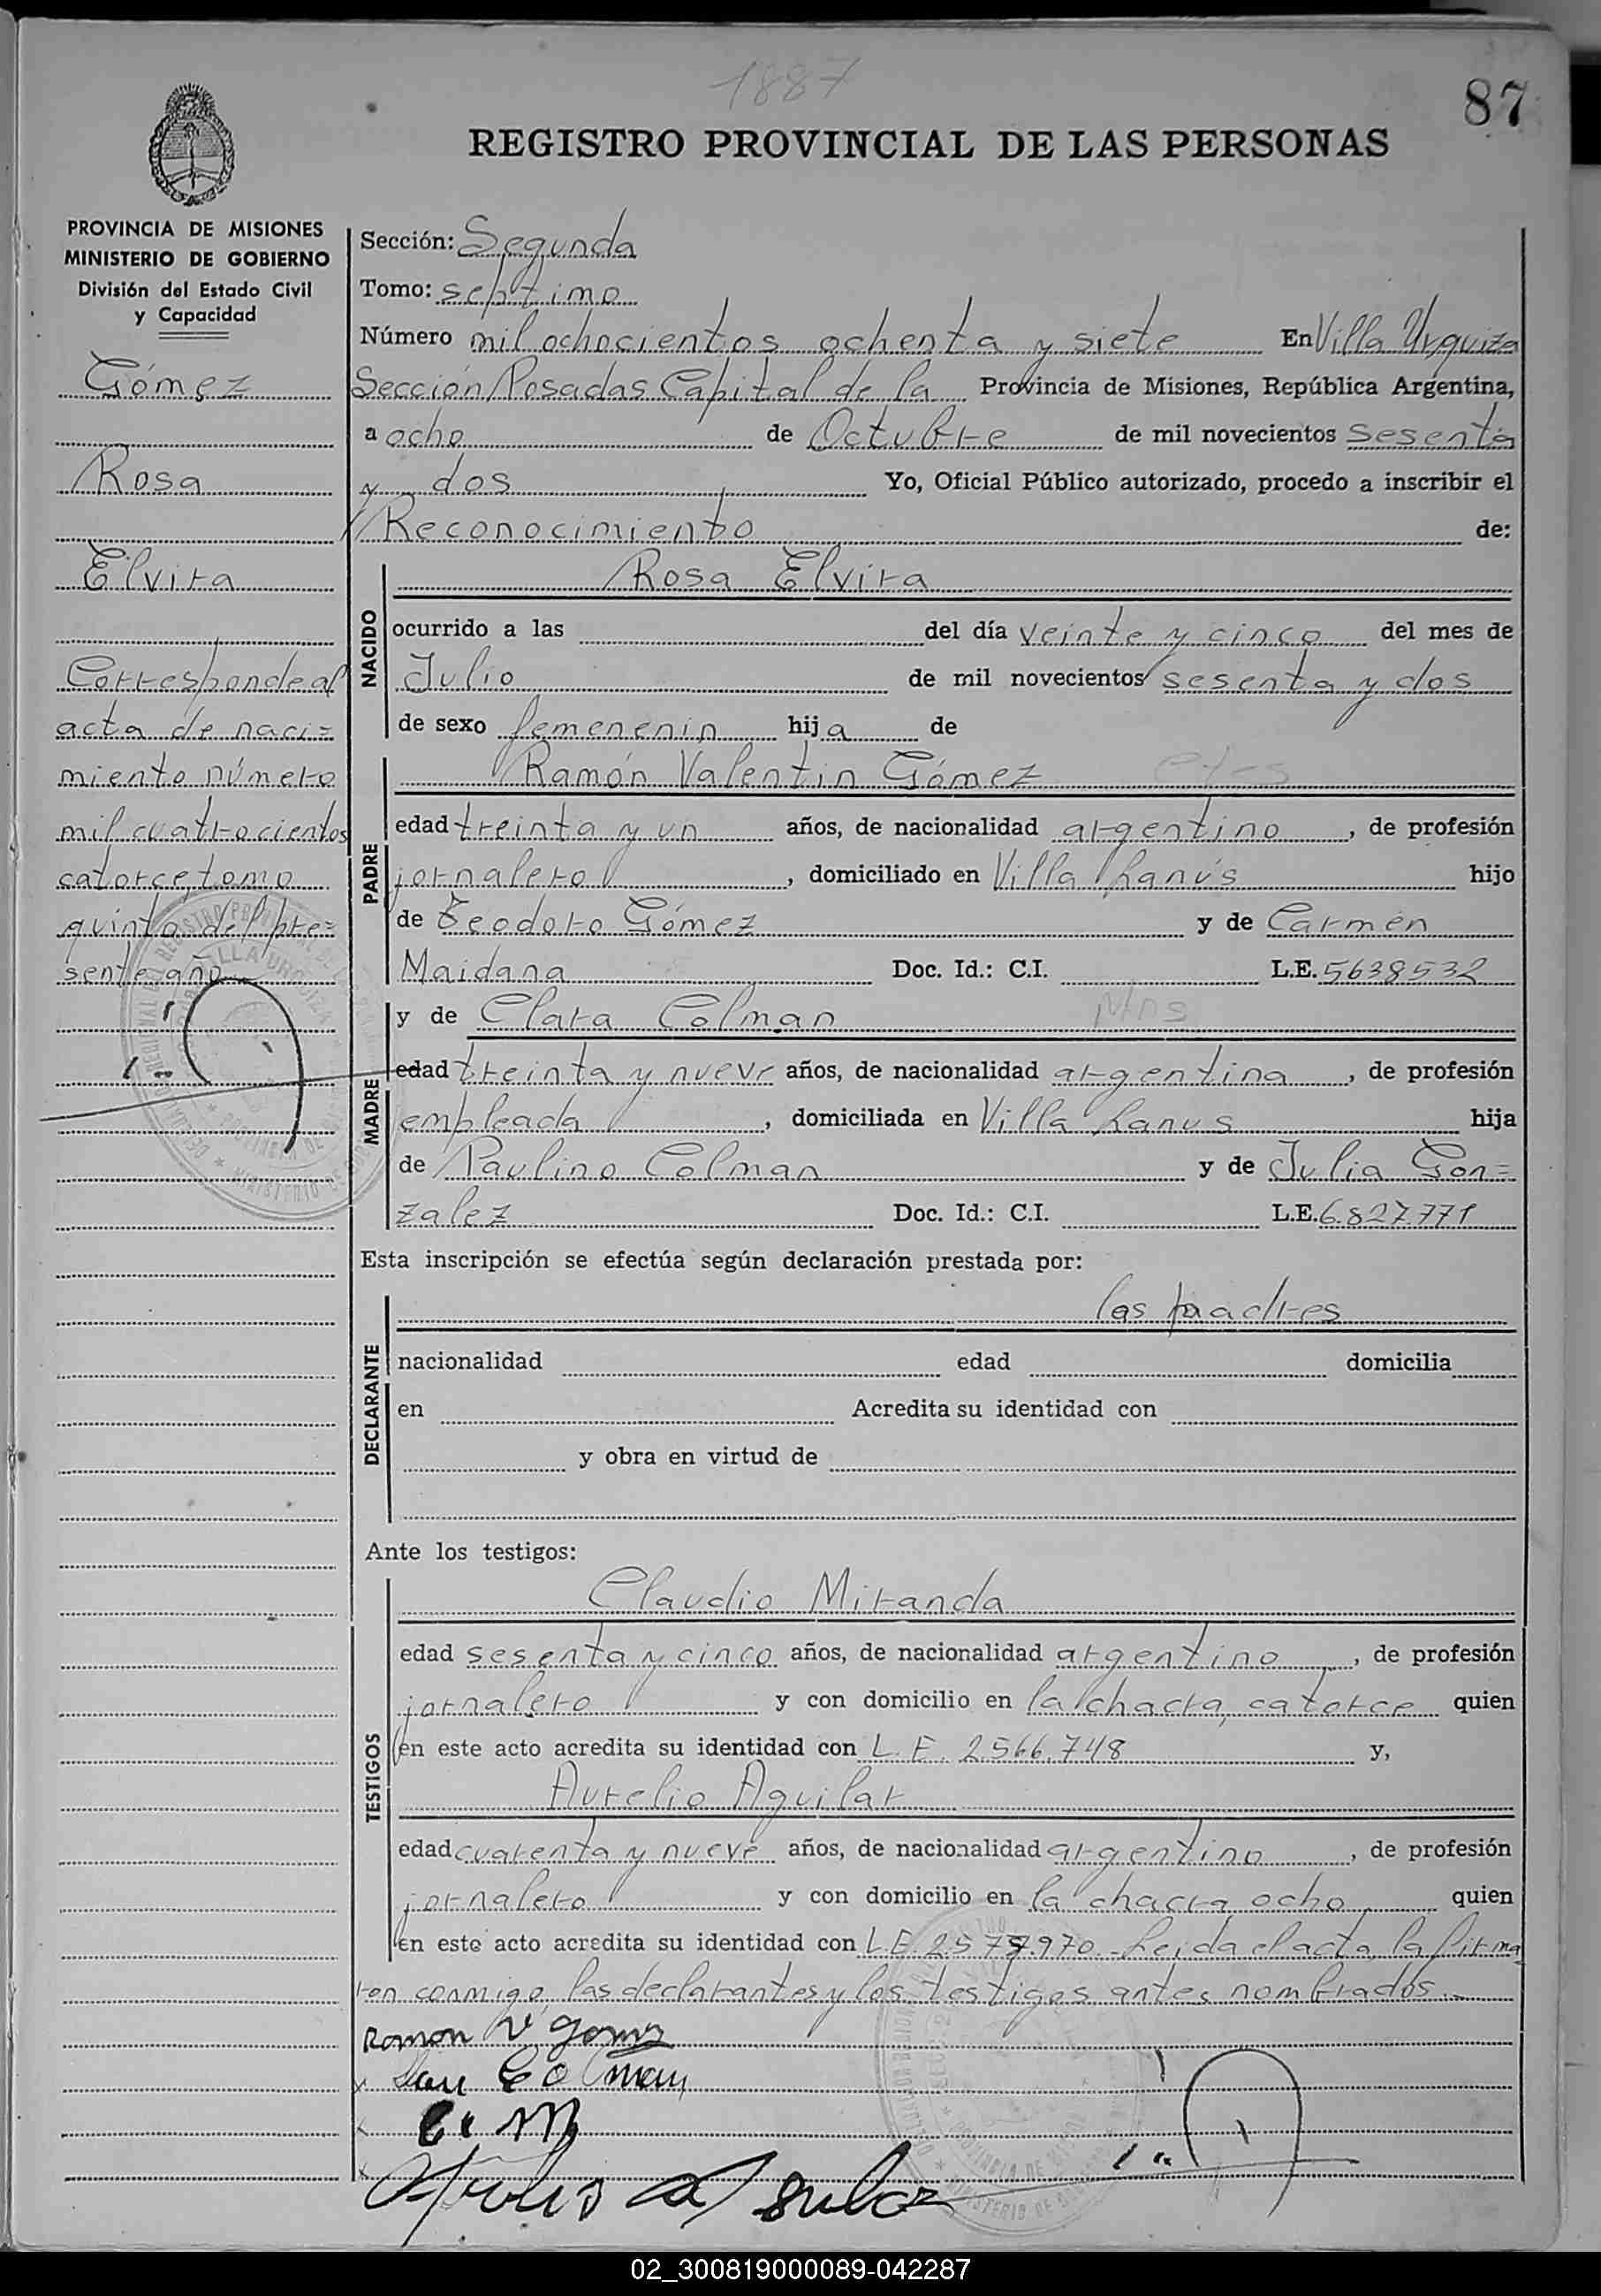 1887
87
REGISTRO PROVINCIAL DE LAS PERSONAS
PROVINCIA DE MISIONES
MINISTERIO DE GOBIERNO
División del Estado Civil
y Capacidad
Gómez
Rosa
Elvira
Corresponde al
acta de naci=
miento número
mil cuatrocientos
catorce, tomo
quinto del pre=
sente año
Sección: Segunda
Tomo: septimo
Número mil ochocientos ochenta y siete En Villa Urquiza
Sección Posadas Capital de la Provincia de Misiones, República Argentina,
a ocho de Octubre de mil novecientos sesenta
y dos Yo, Oficial Público autorizado, procedo a inscribir el
Reconocimiento de:
NACIDO
Rosa Elvira
ocurrido a las del día veinte y cinco del mes de
Julio de mil novecientos sesenta y dos
de sexo femenenin hija de
PADRE
Ramón Valentin Gómez
edad treinta y un años, de nacionalidad argentino, de profesión
jornalero, domiciliado en Villa Lanús hijo
de Teodoro Gómez y de Carmen
Maidana Doc. Id.: C.I. L.E. 5638532
MADRE
y de Clara Colman
edad treinta y nueve años, de nacionalidad argentina, de profesión
empleada, domiciliada en Villa Lanus hija
de Paulino Colman y de Julia Gon=
zalez Doc. Id.: C.I. L.E. 6.827.771
Esta inscripción se efectúa según declaración prestada por:
DECLARANTE
los padres
nacionalidad edad domicilia
en Acredita su identidad con
y obra en virtud de
Ante los testigos:
TESTIGOS
Claudio Miranda
edad sesenta y cinco años, de nacionalidad argentino, de profesión
jornalero y con domicilio en la chacra, catorce quien
en este acto acredita su identidad con L.E. 2.566.748 y,
Aurelio Aguilar
edad cuarenta y nueve años, de nacionalidad argentino, de profesión
jornalero y con domicilio en la chacra ocho quien
en este acto acredita su identidad con L.E. 2.577.970.- Leida el acta, la firma
ron conmigo, las declarantes y los testigos antes nombrados.-
Ramon V Gomez
Colman
C. M
02_300819000089-042287